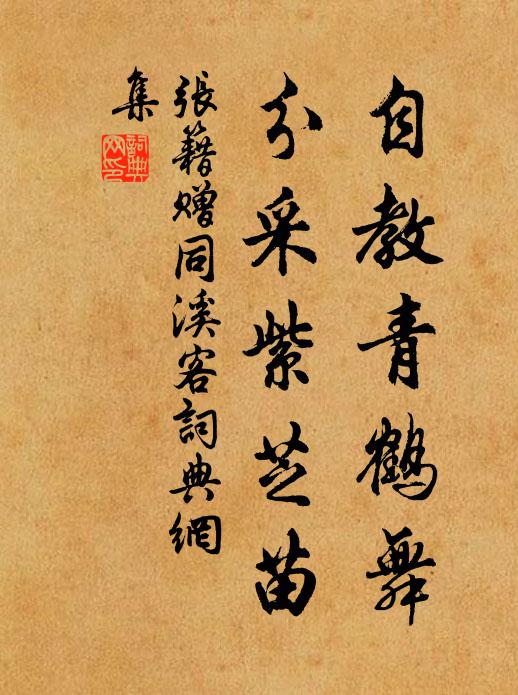 自教青鶴舞
分采紫芝苗
張籍贈同溪客詞典網
集
詞典
网印